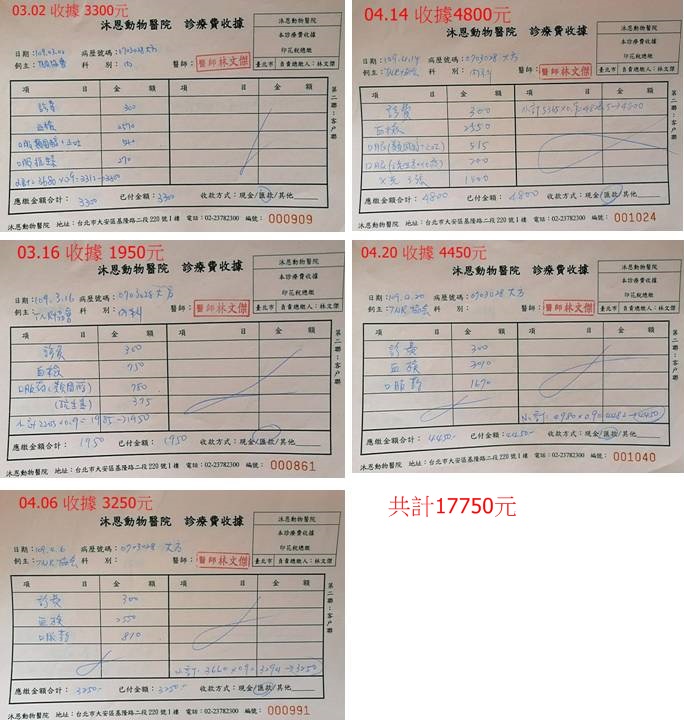 03.02 收據 3300元
沐恩動物醫院 診療費收據
沐恩動物醫院
本診療費收據
印花稅總繳
臺北市 負責總繳人：林文傑
日期：109.03.02 病歷號碼：0703028 大方
飼主：TNR協會 科 別：內 醫師：醫師林文傑
項 目 金 額 項 目 金 額
診費 300
血檢 2570
口服抗生素 270
3680×0.9=3312→3300
應繳金額合計：3300 已付金額：3300 收款方式：現金/匯款/其他
沐恩動物醫院 地址：台北市大安區基隆路二段220號1樓 電話：02-23782300 編號：000909
第二聯：客戶聯
04.14 收據4800元
沐恩動物醫院 診療費收據
沐恩動物醫院
本診療費收據
印花稅總繳
臺北市 負責總繳人：林文傑
日期：109.4.14 病歷號碼：0703028 大方
飼主：TNR協會 科 別： 醫師：醫師林文傑
項 目 金 額 項 目 金 額
診費 300
血檢 2550
515
200
X光3張
應繳金額合計：4800 已付金額：4800 收款方式：現金/匯款/其他
沐恩動物醫院 地址：台北市大安區基隆路二段220號1樓 電話：02-23782300 編號：001024
第二聯：客戶聯
03.16 收據 1950元
沐恩動物醫院 診療費收據
沐恩動物醫院
本診療費收據
印花稅總繳
臺北市 負責總繳人：林文傑
日期：109.3.16 病歷號碼：0703028 大方
飼主：TNR協會 科 別：內科 醫師：醫師林文傑
項 目 金 額 項 目 金 額
診費 300
血檢 750
口服藥(類固醇) 780
(抗生素) 375
小計2205×0.9=1985→1950
應繳金額合計：1950 已付金額：1950 收款方式：現金/匯款/其他
沐恩動物醫院 地址：台北市大安區基隆路二段220號1樓 電話：02-23782300 編號：000861
第二聯：客戶聯
04.20 收據 4450元
沐恩動物醫院 診療費收據
沐恩動物醫院
本診療費收據
印花稅總繳
臺北市 負責總繳人：林文傑
日期：109.4.20 病歷號碼：0703028 大方
飼主：TNR協會 科 別： 醫師：醫師林文傑
項 目 金 額 項 目 金 額
診費 300
血檢 3010
口服藥 1670
小計：4980×0.9=4482→4450
應繳金額合計：4450- 已付金額：4450- 收款方式：現金/匯款/其他
沐恩動物醫院 地址：台北市大安區基隆路二段220號1樓 電話：02-23782300 編號：001040
第二聯：客戶聯
04.06 收據 3250元
沐恩動物醫院 診療費收據
沐恩動物醫院
本診療費收據
印花稅總繳
臺北市 負責總繳人：林文傑
日期：109.4.6 病歷號碼：0703028 大方
飼主：TNR協會 科 別： 醫師：醫師林文傑
項 目 金 額 項 目 金 額
診費 300
血檢 2550
口服藥 810
小計：3660×0.9=3294→3250
應繳金額合計：3250- 已付金額：3250- 收款方式：現金/匯款/其他
沐恩動物醫院 地址：台北市大安區基隆路二段220號1樓 電話：02-23782300 編號：000991
第二聯：客戶聯
共計17750元